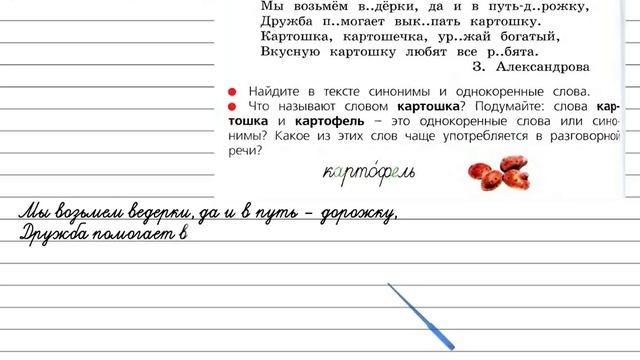 Мы возьмём в..дёрки, да и в путь-д..рожку,
Дружба п..могает вык..пать картошку.
Картошка, картошечка, ур..жай богатый,
Вкусную картошку любят все р..бята.
З. Александрова
Найдите в тексте синонимы и однокоренные слова.
Что называют словом картошка? Подумайте: слова кар-
тошка и картофель – это однокоренные слова или сино-
нимы? Какое из этих слов чаще употребляется в разговорной
речи?
карто́фель
Мы возьмем ведерки, да и в путь – дорожку,
Дружба помогает в